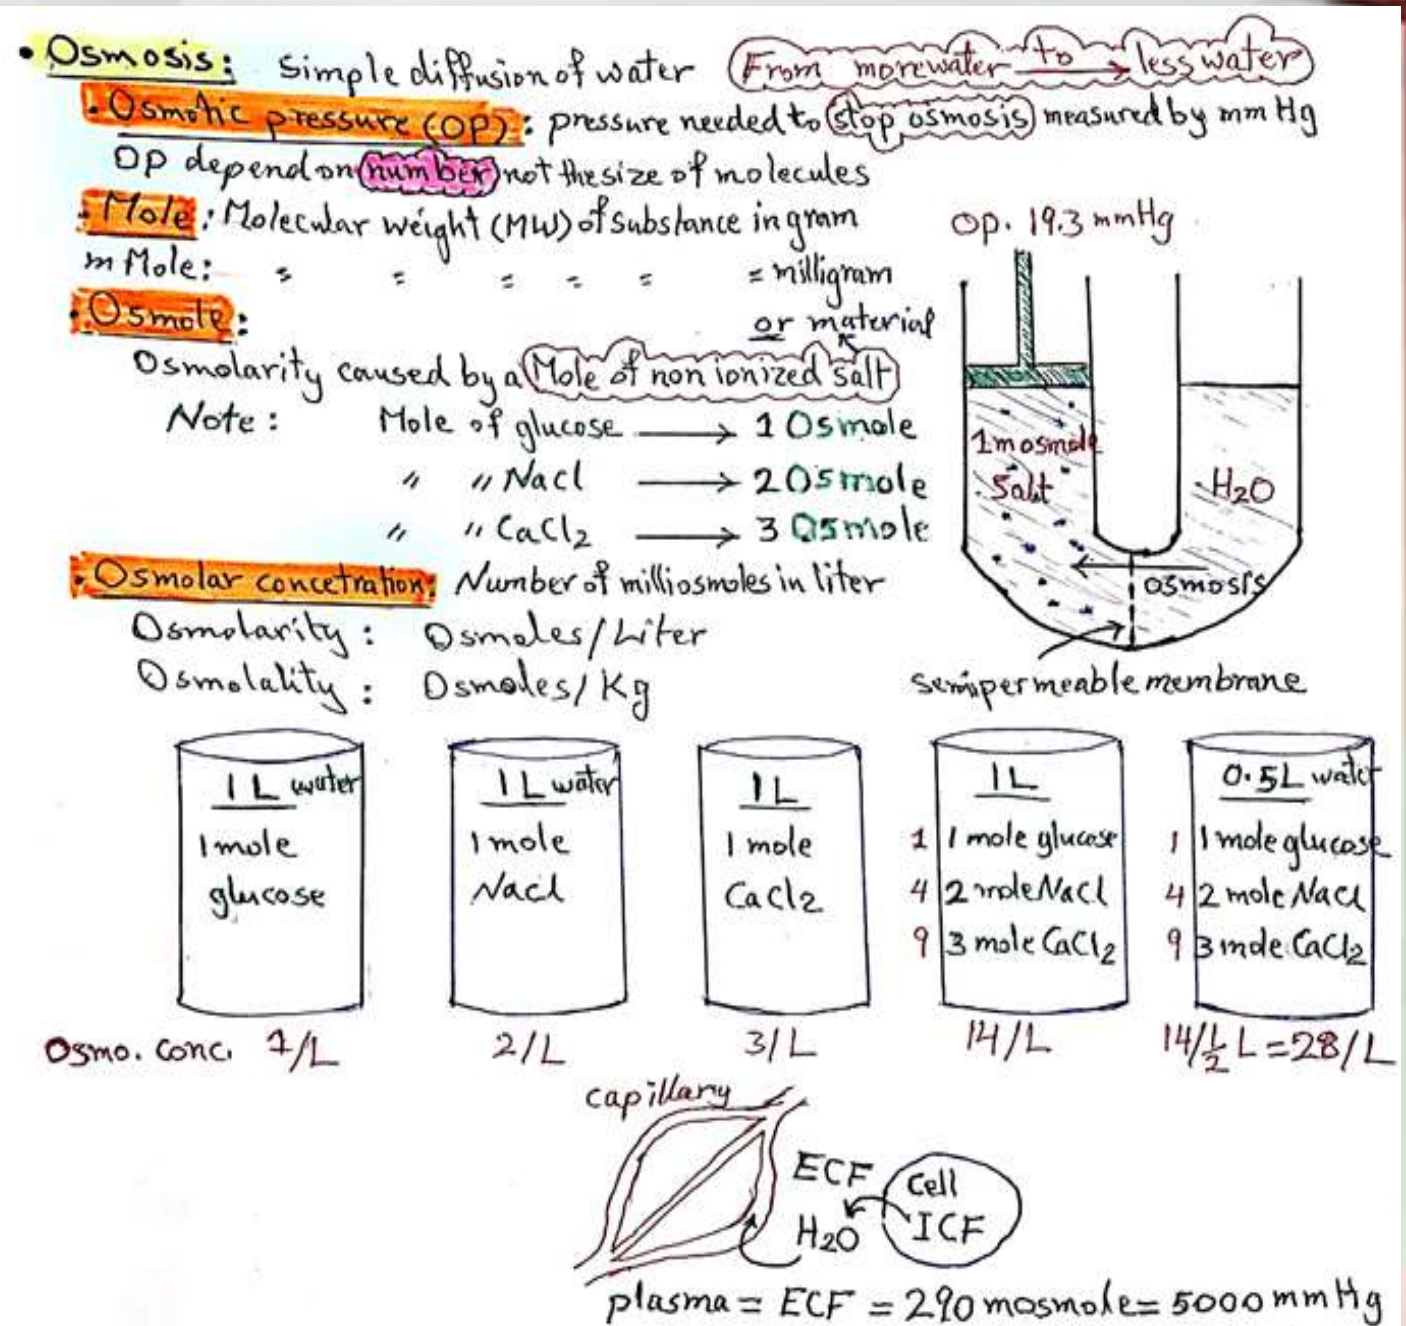 • Osmosis: Simple diffusion of water From more water to → less water
• Osmotic pressure (OP): pressure needed to stop osmosis measured by mm Hg
OP depend on number not the size of molecules
• Mole: Molecular weight (MW) of substance in gram
m Mole: = = = = = = milligram
• Osmole:
or material
Osmolarity caused by a Mole of non ionized salt
Note: Mole of glucose → 1 Osmole
" " Nacl → 2 Osmole
" " CaCl2 → 3 Osmole
• Osmolar concetration: Number of milliosmoles in liter
Osmolarity: Osmoles/Liter
Osmolality: Osmoles/Kg
Op. 19.3 mmHg
1 mosmole
Salt
H2O
osmosis
semipermeable membrane
1L water
1 mole
glucose
1L water
1 mole
Nacl
1L
1 mole
CaCl2
1L
1 1 mole glucose
4 2 mole NaCl
9 3 mole CaCl2
0.5L water
1 1 mole glucose
4 2 mole NaCl
9 3 mole CaCl2
Osmo. conc. 1/L 2/L 3/L 14/L 14/½ L = 28/L
capillary
ECF
H2O
Cell
ICF
plasma = ECF = 290 mosmole = 5000 mm Hg